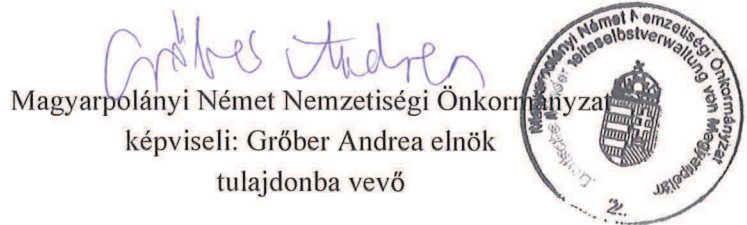 Grőber Andrea
Magyarpolányi Német Nemzetiségi Önkormányzat
képviseli: Grőber Andrea elnök
tulajdonba vevő
Magyarpolányi Német Nemzetiségi Önkormányzat
Deutsche Minderheitenselbstverwaltung von Magyarpolán
2.